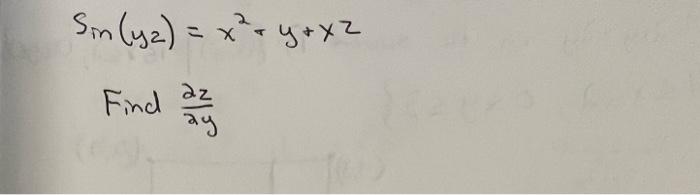 Sin(yz) = x² + y + xz
Find ∂z/∂y